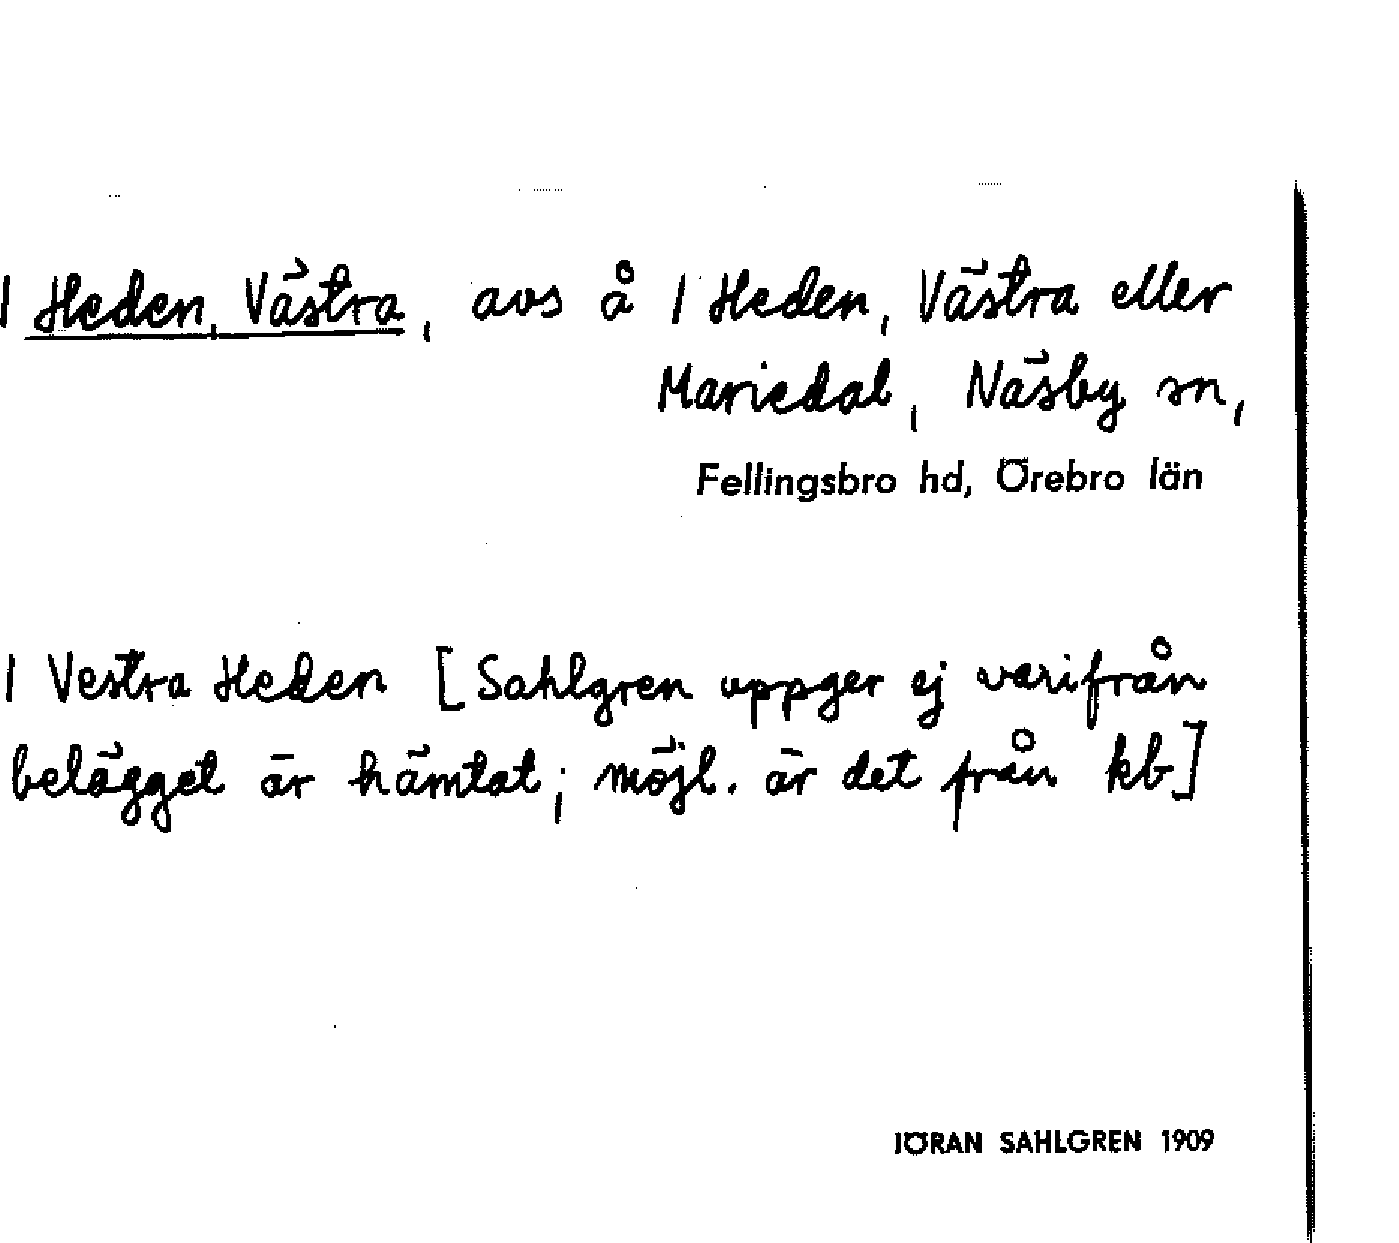 / Heden, Västra, avs å / Heden, Västra eller
Mariedal, Näsby sn,
Fellingsbro hd, Örebro län
/ Vestra Heden [Sahlgren uppger ej varifrån
belägget är hämtat; möjl. är det från kb]
JÖRAN SAHLGREN 1909